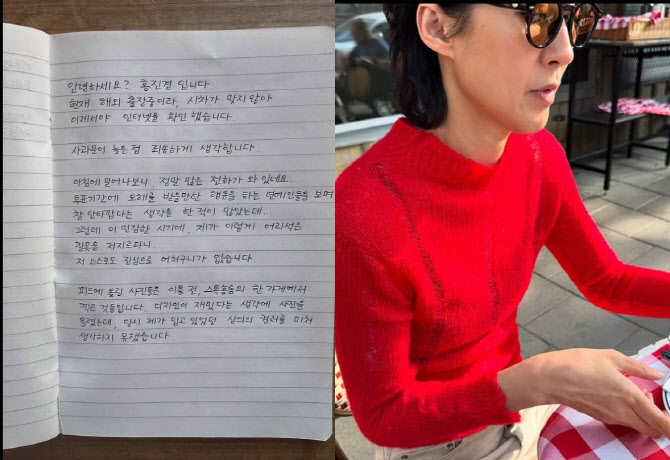 안녕하세요? 홍진경 입니다
현재 해외 출장중이라, 시차가 맞지 않아
이제서야 인터넷을 확인 했습니다.
사과문이 늦은점 죄송하게 생각합니다.
아침에 일어나보니, 정말 많은 전화가 와 있네요.
투표기간에 오해를 받을만한 행동을 하는 연예인들을 보며
참 안타깝다는 생각을 한 적이 많았는데.
그런데 이 민감한 시기에, 제가 이렇게 어리석은
잘못을 저지르다니.
저 스스로도 진심으로 어처구니가 없습니다.
피드에 올린 사진들은 이틀 전, 스톡홀름의 한 가게에서
찍은 것들입니다. 디자인이 재밌다는 생각에 사진을
올렸는데, 당시 제가 입고 있었던 상의의 컬러를 미처
생각하지 못했습니다.